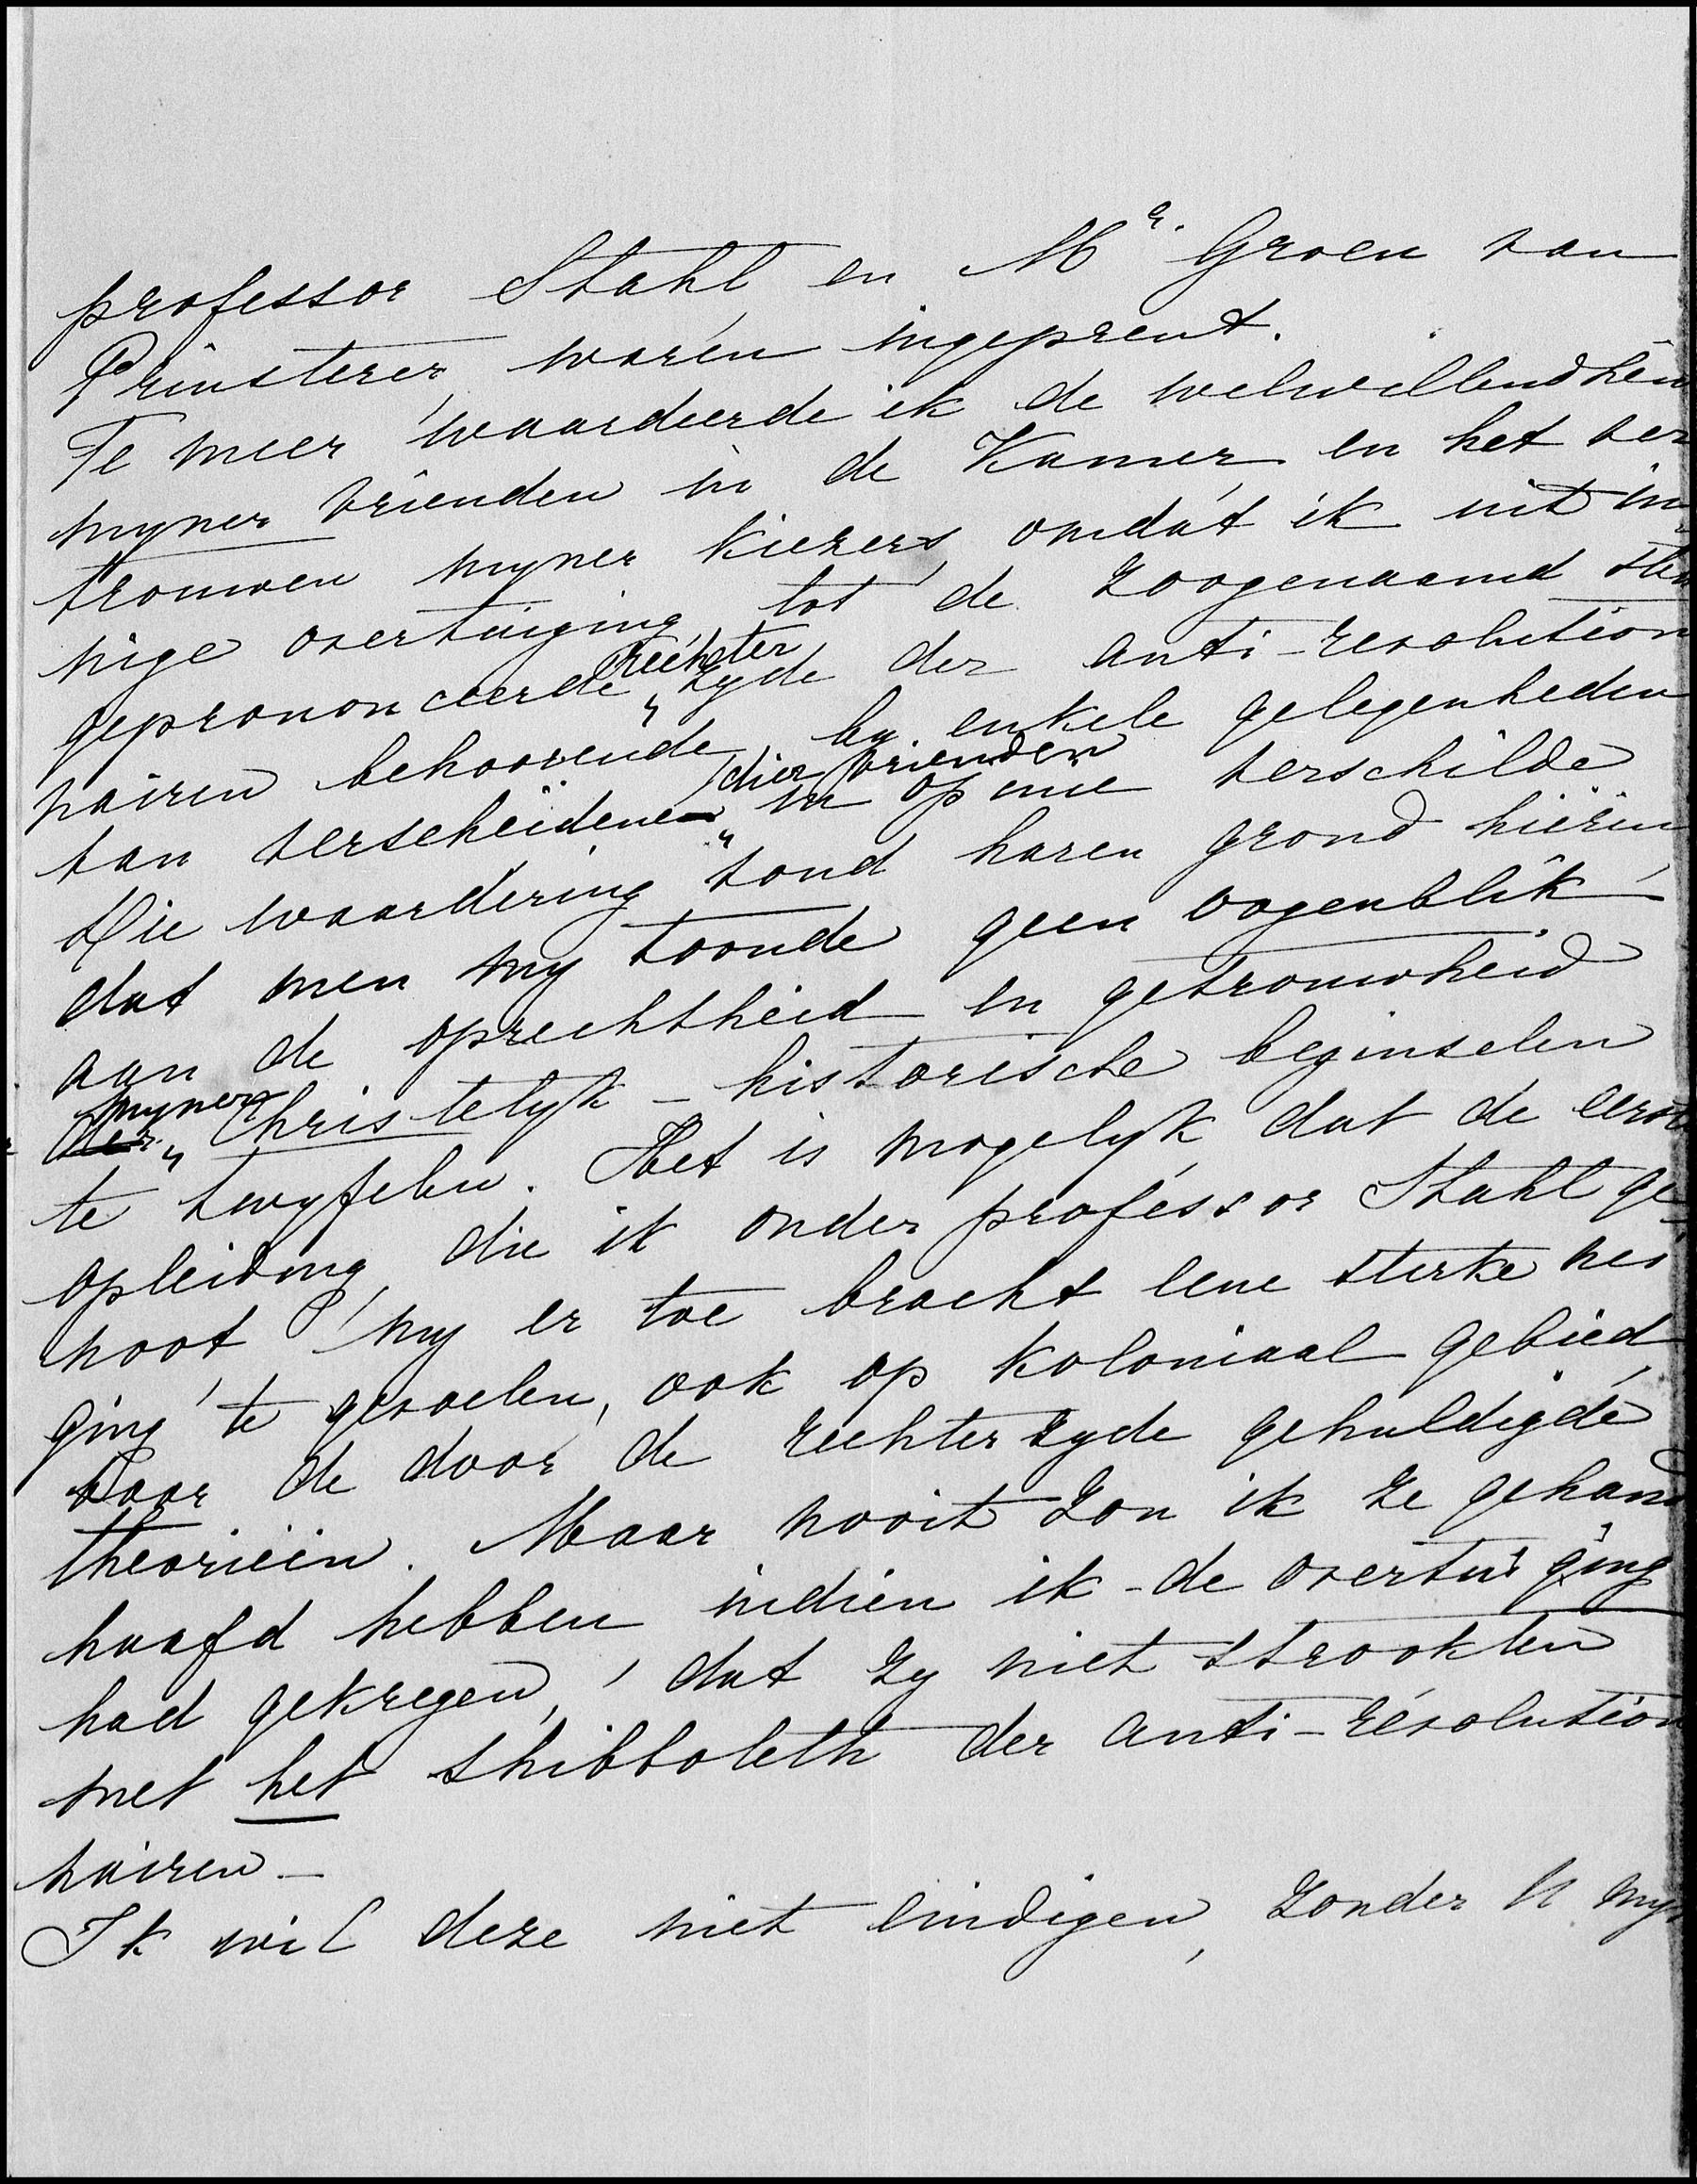 professor Stahl en Mr. Groen van
Prinsterer, waren ingeprent.
Te meer waardeerde ik de welwillendhein
myner vrienden in de Kamer en het ver
trouwen myner kiezers, omdat ik uit in
nige overtuiging tot de zoogenaamd sten
rechter
geprononceerde zyde der anti-revolution
nairen behoorende, by enkele gelegenheden
dier vrienden
van verscheidene in opinie verschilde
Die waardering vond haren grond hierin,
dat men my toonde geen oogenblik
aan de oprechtheid en getrouwheid
myner
der Christelyk-historische beginselen
te twyfelen. Het is mogelyk, dat de eerste
opleiding, die ik onder professor Stahl ge-
noot, my er toe bracht eene sterke nei
ging te gevoelen, ook op koloniaal gebied,
voor de door de rechterzyde gehuldigde
theorieën. Maar nooit zou ik ze gehand
haafd hebben indien ik de overtuiging
had gekregen, dat zy niet strookten
met het shibboleth der anti-revolution
nairen-
Ik wil deze niet eindigen, zonder U myn